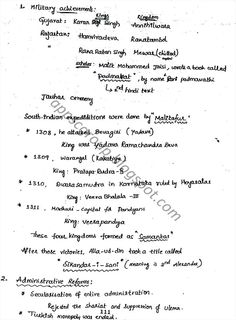 1. Military achievement:
Kings Kingdom
Gujarat: Karan Singh Annihilwara
Rajastan: Hamviradeva Ranatambol
Rana Ratan Singh Mewar (chittod)
Malik Mohammed Jaisi, wrote a book called
"Padmavat", by name Rani padmavathi
2nd hindi text
Jauhar ceremony
South-Indian expeditions were done by "Malikafur"
• 1308, he attacked Devagiri (Yadava)
King was Yadava Ramachandra Deva
• 1309, Warangal (Kakatiya)
King: Pratapa Rudra-II
• 1310, Dwarasamudra in Karnataka ruled by Hoyasalas
King: Veera Ballala-III
• 1311, Madhurai - capital for Pandyans
King: Veerapandya
These four kingdoms formed as "Samantas"
After these victories, Alla-ud-din took a title called
Sikandar-I-sani (meaning is 2nd Alexander)
2. Administrative Reforms:
• Secularisation of entire administration.
Rejected the Shariat and suppression of Ulema.
• Turkish monopoly was ended.
111